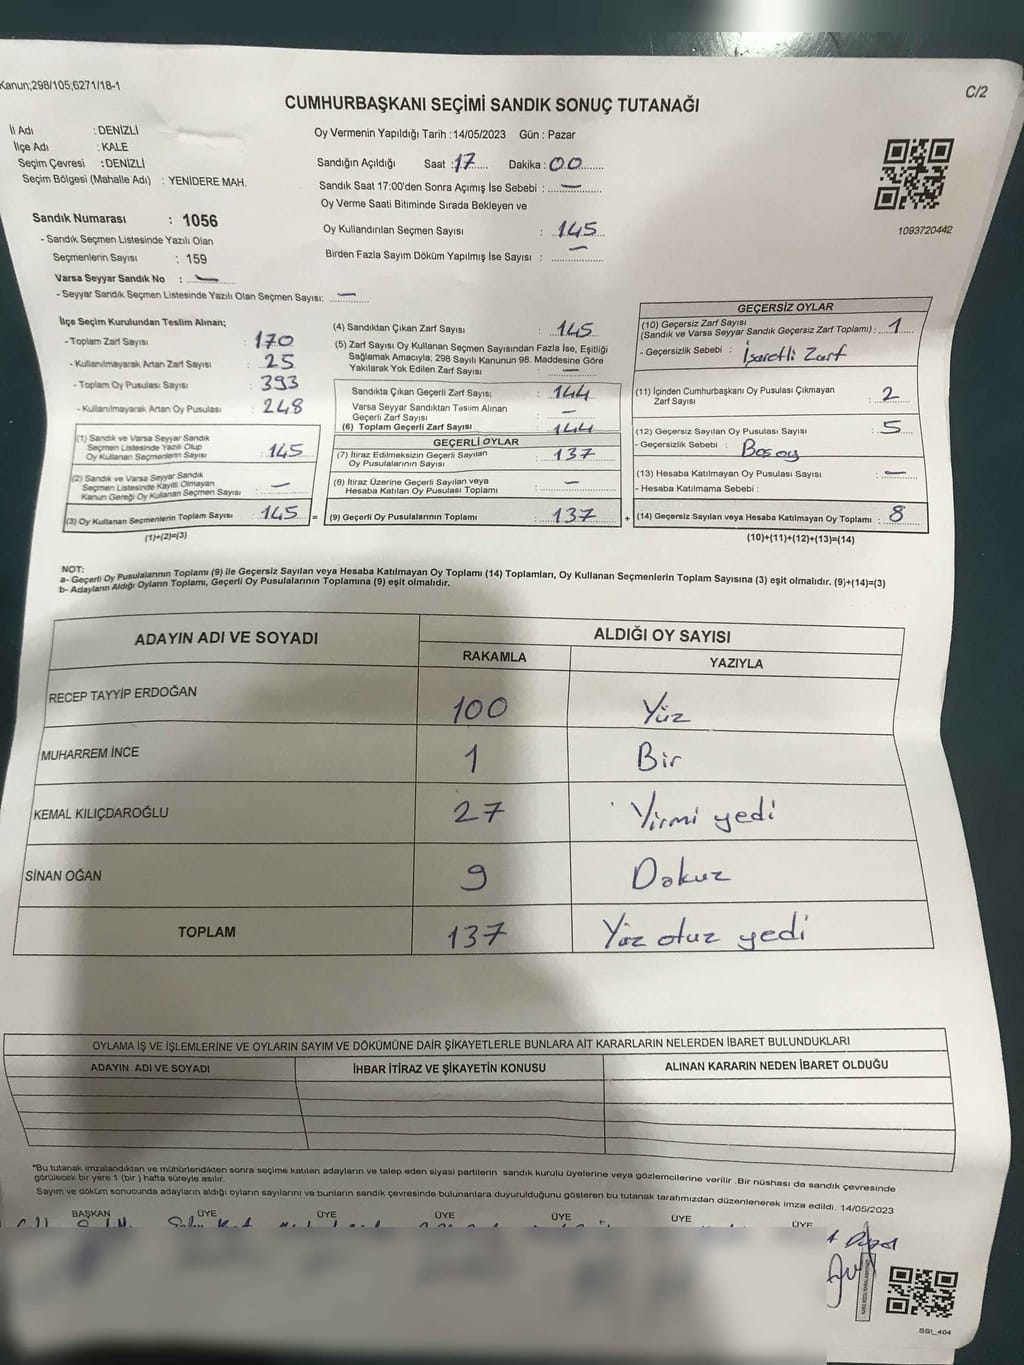 Kanun;298/105;6271/18-1
C/2
CUMHURBAŞKANI SEÇİMİ SANDIK SONUÇ TUTANAĞI
İl Adı : DENİZLİ
İlçe Adı : KALE
Seçim Çevresi : DENİZLİ
Seçim Bölgesi (Mahalle Adı) : YENIDERE MAH.
Oy Vermenin Yapıldığı Tarih :14/05/2023 Gün : Pazar
Sandığın Açıldığı Saat : 17 Dakika : 00
Sandık Saat 17:00'den Sonra Açımış İse Sebebi : —
Oy Verme Saati Bitiminde Sırada Bekleyen ve
Oy Kullandırılan Seçmen Sayısı : 145
Birden Fazla Sayım Döküm Yapılmış İse Sayısı : —
1093720442
Sandık Numarası : 1056
- Sandık Seçmen Listesinde Yazılı Olan
Seçmenlerin Sayısı : 159
Varsa Seyyar Sandık No : —
- Seyyar Sandık Seçmen Listesinde Yazılı Olan Seçmen Sayısı: —
İlçe Seçim Kurulundan Teslim Alınan;
- Toplam Zarf Sayısı : 170
- Kullanılmayarak Artan Zarf Sayısı : 25
- Toplam Oy Pusulası Sayısı : 393
- Kullanılmayarak Artan Oy Pusulası : 248
(1) Sandık ve Varsa Seyyar Sandık
Seçmen Listesinde Yazılı Olup
Oy Kullanan Seçmenlerin Sayısı : 145
(2) Sandık ve Varsa Seyyar Sandık
Seçmen Listesinde Kayıtlı Olmayan
Kanun Gereği Oy Kullanan Seçmen Sayısı : —
(3) Oy Kullanan Seçmenlerin Toplam Sayısı : 145 =
(1)+(2)=(3)
(4) Sandıktan Çıkan Zarf Sayısı : 145
(5) Zarf Sayısı Oy Kullanan Seçmen Sayısından Fazla İse, Eşitliği
Sağlamak Amacıyla; 298 Sayılı Kanunun 98. Maddesine Göre
Yakılarak Yok Edilen Zarf Sayısı : —
Sandıkta Çıkan Geçerli Zarf Sayısı; : 144
Varsa Seyyar Sandıktan Teslim Alınan
Geçerli Zarf Sayısı : —
(6) Toplam Geçerli Zarf Sayısı : 144
GEÇERLİ OYLAR
(7) İtiraz Edilmeksizin Geçerli Sayılan
Oy Pusulalarının Sayısı : 137
(8) İtiraz Üzerine Geçerli Sayılan veya
Hesaba Katılan Oy Pusulası Toplamı : —
(9) Geçerli Oy Pusulalarının Toplamı : 137 +
GEÇERSİZ OYLAR
(10) Geçersiz Zarf Sayısı
(Sandık ve Varsa Seyyar Sandık Geçersiz Zarf Toplamı) : 1
- Geçersizlik Sebebi : İşaretli Zarf
(11) İçinden Cumhurbaşkanı Oy Pusulası Çıkmayan
Zarf Sayısı : 2
(12) Geçersiz Sayılan Oy Pusulası Sayısı : 5
- Geçersizlik Sebebi : Boş oy
(13) Hesaba Katılmayan Oy Pusulası Sayısı : —
- Hesaba Katılmama Sebebi :
(14) Geçersiz Sayılan veya Hesaba Katılmayan Oy Toplamı : 8
(10)+(11)+(12)+(13)=(14)
NOT:
a- Geçerli Oy Pusulalarının Toplamı (9) ile Geçersiz Sayılan veya Hesaba Katılmayan Oy Toplamı (14) Toplamları, Oy Kullanan Seçmenlerin Toplam Sayısına (3) eşit olmalıdır. (9)+(14)=(3)
b- Adayların Aldığı Oyların Toplamı, Geçerli Oy Pusulalarının Toplamına (9) eşit olmalıdır.
ADAYIN ADI VE SOYADI ALDIĞI OY SAYISI
RAKAMLA YAZIYLA
RECEP TAYYİP ERDOĞAN 100 Yüz
MUHARREM İNCE 1 Bir
KEMAL KILIÇDAROĞLU 27 Yirmi yedi
SİNAN OĞAN 9 Dokuz
TOPLAM 137 Yüz otuz yedi
OYLAMA İŞ VE İŞLEMLERİNE VE OYLARIN SAYIM VE DÖKÜMÜNE DAİR ŞİKAYETLERLE BUNLARA AİT KARARLARIN NELERDEN İBARET BULUNDUKLARI
ADAYIN ADI VE SOYADI İHBAR İTİRAZ VE ŞİKAYETİN KONUSU ALINAN KARARIN NEDEN İBARET OLDUĞU
*Bu tutanak imzalandıktan ve mühürlendikten sonra seçime katılan adayların ve talep eden siyasi partilerin sandık kurulu üyelerine veya gözlemcilerine verilir .Bir nüshası da sandık çevresinde
görülecek bir yere 1 (bir ) hafta süreyle asılır.
Sayım ve döküm sonucunda adayların aldığı oyların sayılarını ve bunların sandık çevresinde bulunanlara duyurulduğunu gösteren bu tutanak tarafımızdan düzenlenerek imza edildi. 14/05/2023
BAŞKAN ÜYE ÜYE ÜYE ÜYE ÜYE ÜYE
SSI_404